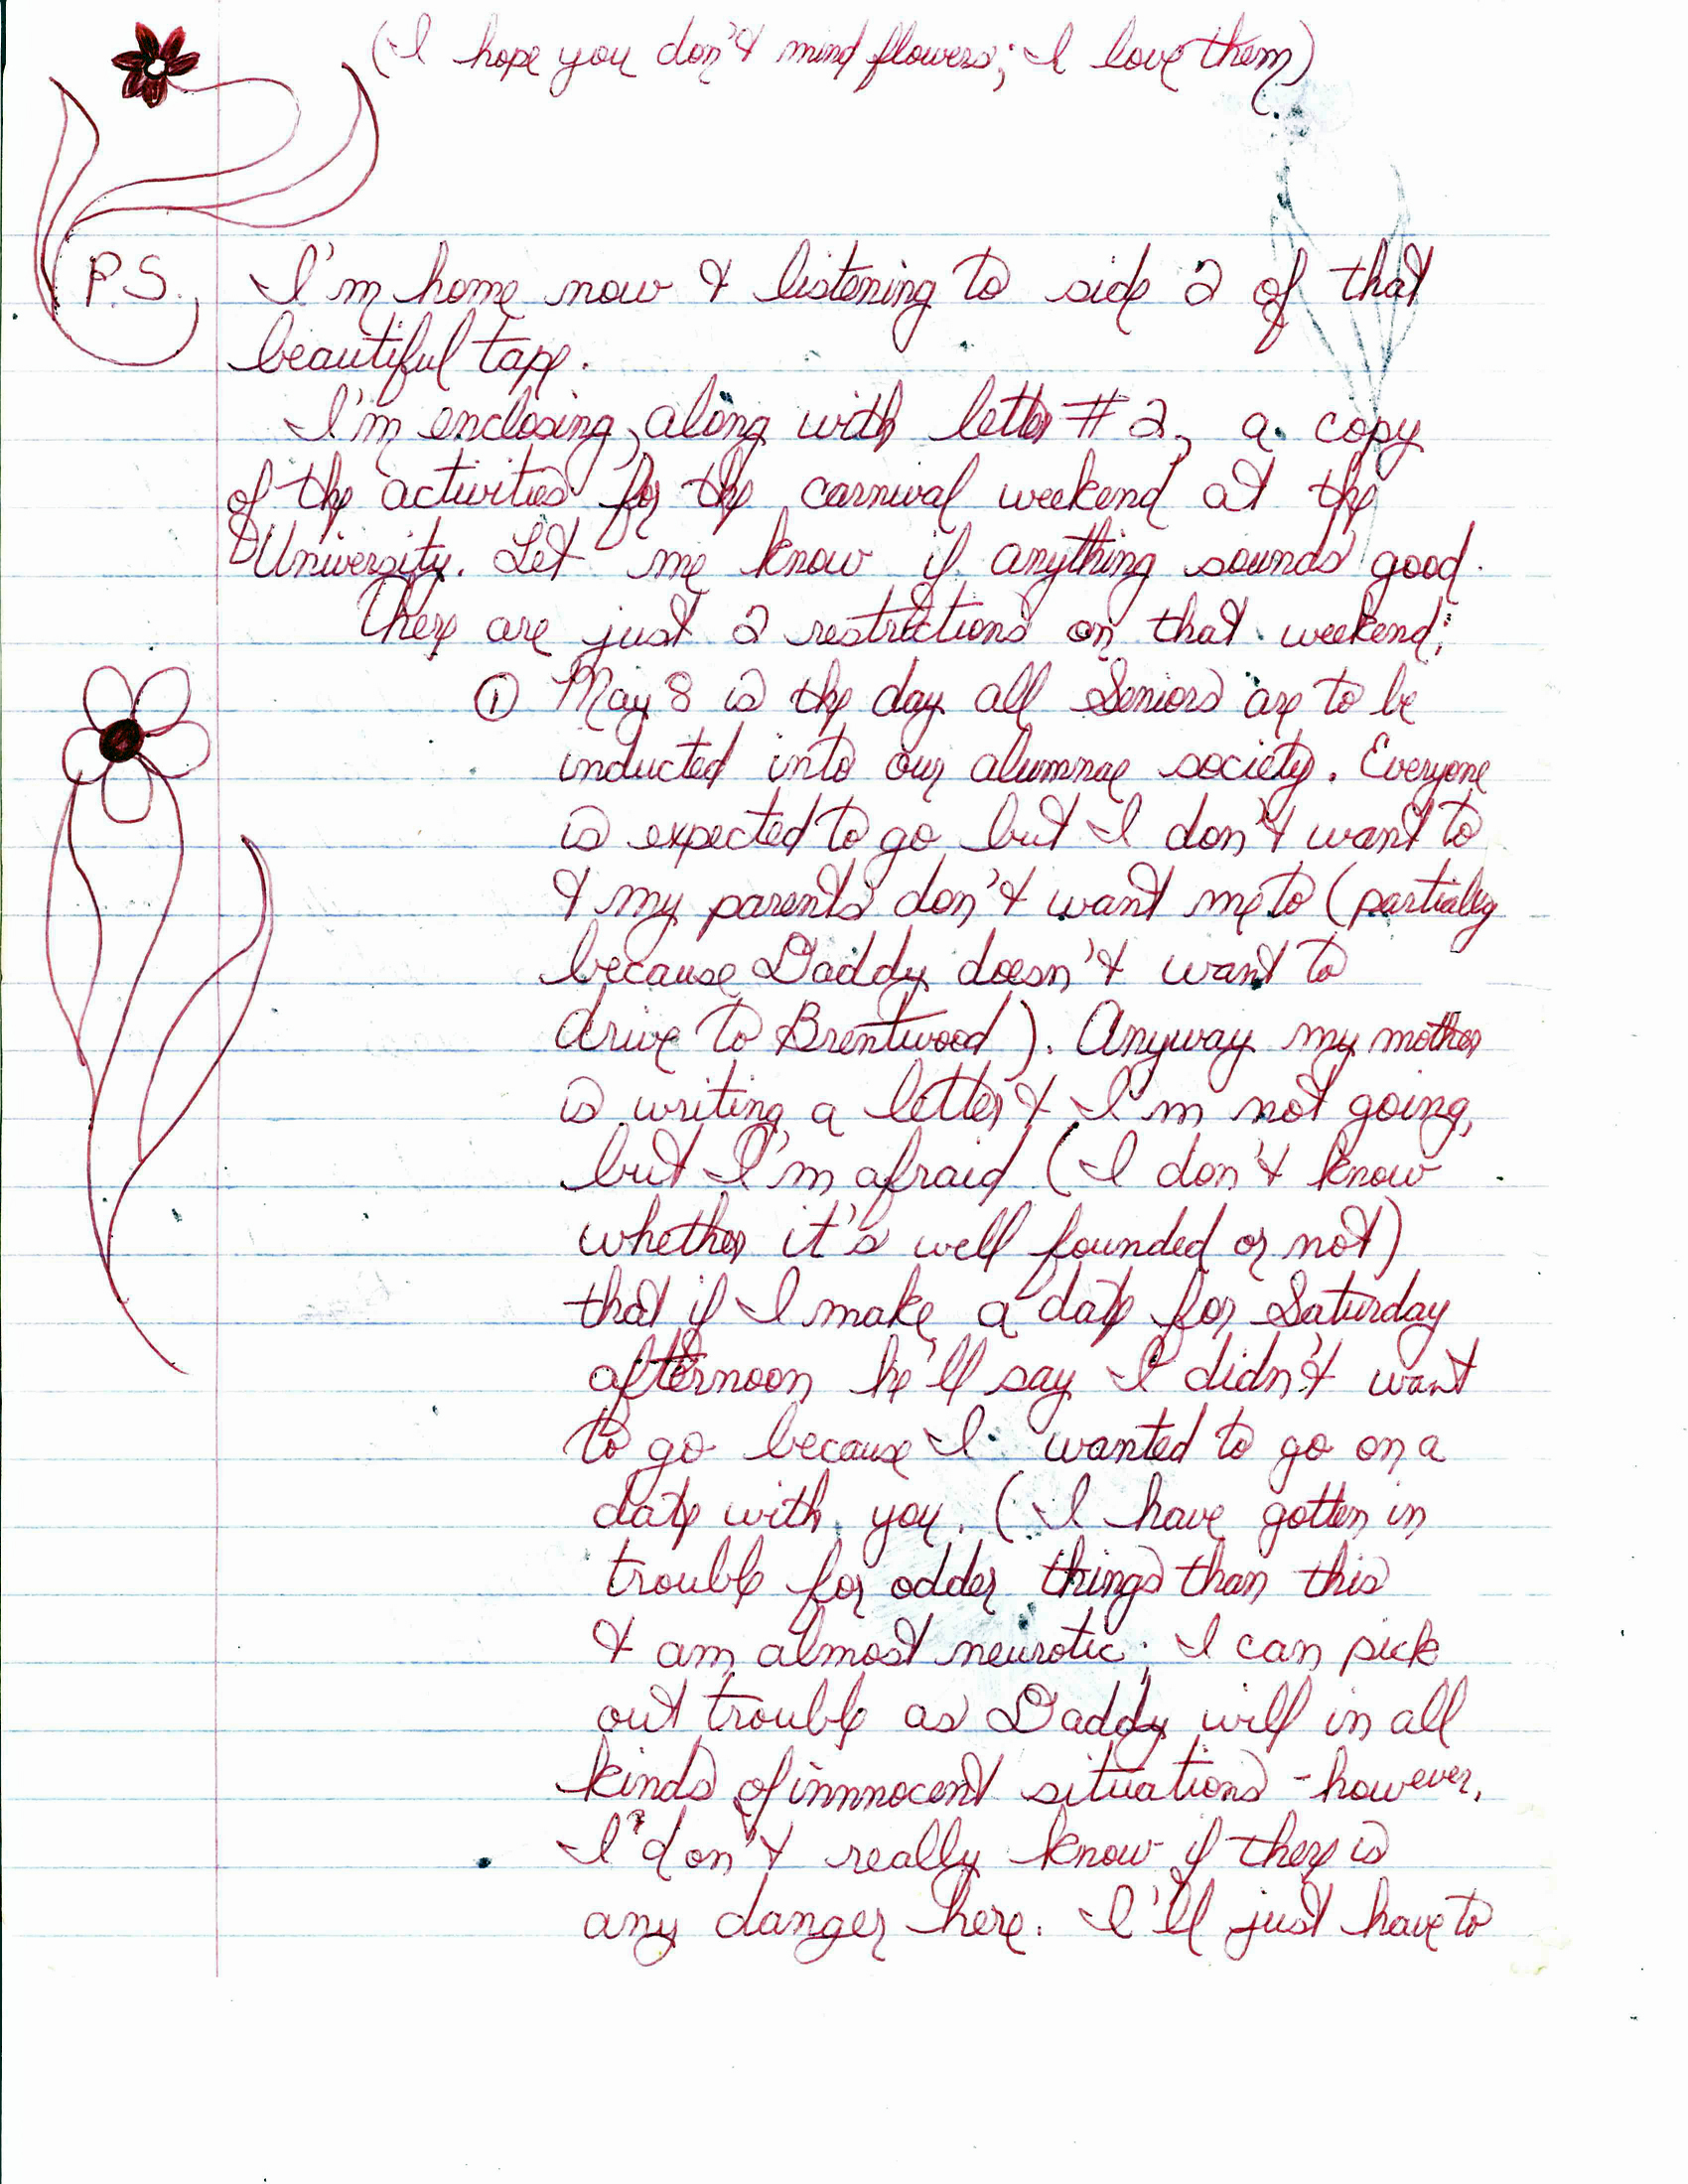 (I hope you don't mind flowers; I love them)
P.S. I'm home now & listening to side 2 of that
beautiful tape.
I'm enclosing, along with letter #2, a copy
of the activities for the carnival weekend at the
University. Let me know if anything sounds good.
There are just 2 restrictions on that weekend;
① May 8 is the day all Seniors are to be
inducted into our alumnae society. Everyone
is expected to go but I don't want to
& my parents don't want me to (partially
because Daddy doesn't want to
drive to Brentwood). Anyway my mother
is writing a letter & I'm not going,
but I'm afraid (I don't know
whether it's well founded or not)
that if I make a date for Saturday
afternoon he'll say I didn't want
to go because I wanted to go on a
date with you. (I have gotten in
trouble for odder things than this
& am almost neurotic; I can pick
out trouble as Daddy will in all
kinds of innnocent situations - however,
I don't really know if there is
any danger here. I'll just have to